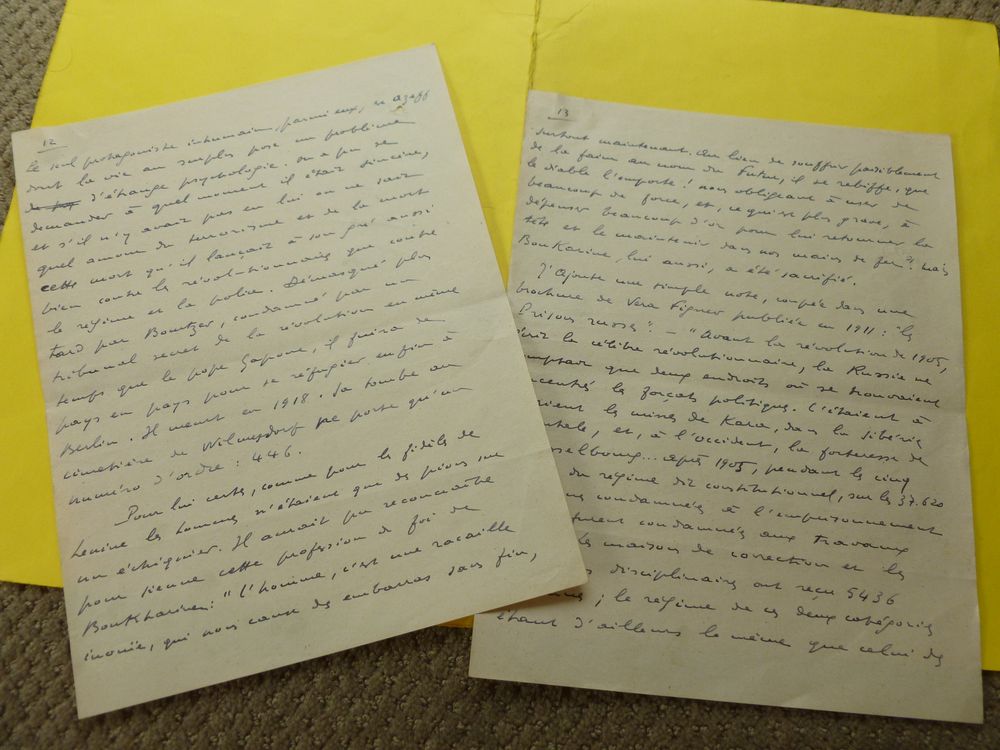 12
le seul protagoniste inhumain, parmi eux, est Azeff
dont la vie au surplus pose un problème
d'étrange psychologie. On a pu se
demander à quel moment il était sincère,
et s'il n'y avait pas en lui on ne sait
quel amour du terrorisme et de la mort
cette mort qu'il lançait à son gré aussi
bien contre les révolutionnaires que contre
le régime et la police. Démasqué plus
tard par Bourtzev, condamné par un
tribunal secret de la révolution en même
temps que le pope Gapone, il fuira de
pays en pays pour se réfugier enfin à
Berlin. Il meurt en 1918. Sa tombe au
cimetière de Wilmersdorf ne porte qu'un
numéro d'ordre : 446.
Pour lui certes, comme pour les fidèles de
Lenine les hommes n'étaient que des pions sur
un échiquier. Il aurait pu reconnaître
pour sienne cette profession de foi de
Boukharine : "L'homme, c'est une racaille
inouïe, qui nous cause des embarras sans fin,
13
surtout maintenant. Au lieu de souffrir paisiblement
de la faim au nom du Futur, il se rebiffe, que
le diable l'emporte ! nous obligeant à user de
beaucoup de force, et, ce qui est plus grave, à
dépenser beaucoup d'or pour lui retourner la
tête et le maintenir dans nos mains de fer". Mais
Boukarine, lui aussi, a été sacrifié.
J'ajoute une simple note, coupée dans une
brochure de Vera Figner publiée en 1911 : "les
Prisons russes". – "Avant la révolution de 1905,
écrit la célèbre révolutionnaire, la Russie ne
comptait que deux endroits où se trouvaient
concentrés les forçats politiques. C'étaient à
les mines de Kara, dans la Sibérie
et, à l'occident, la forteresse de
Après 1905, pendant les cinq
du régime dit constitutionnel, sur les 37.620
condamnés à l'emprisonnement
condamnés aux travaux
les maisons de correction et les
disciplinaires ont reçu 5436
; le régime de ces deux catégories
étant d'ailleurs le même que celui des